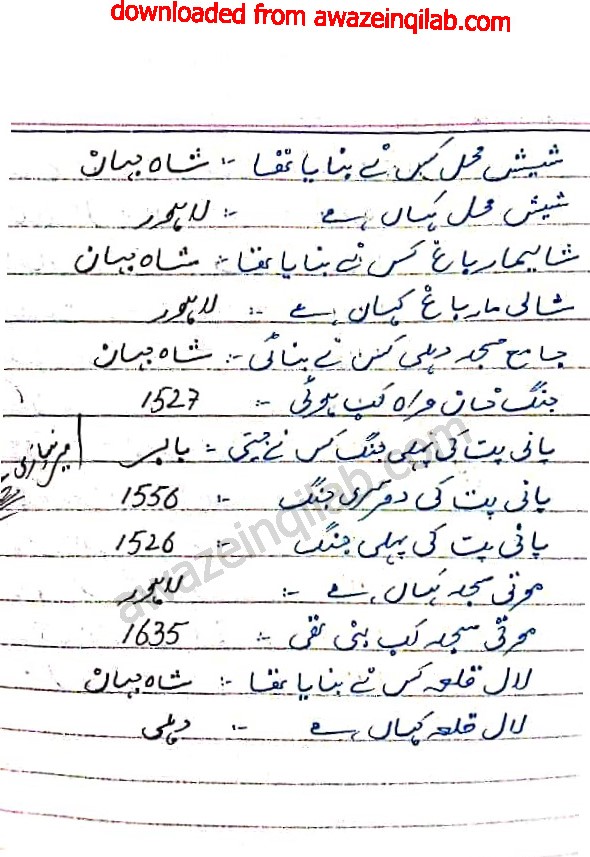 downloaded from awazeinqilab.com
شیش محل کس نے بنایا تھا :- شاہ جہان
شیش محل کہاں ہے :- لاہور
شالیمار باغ کس نے بنایا تھا :- شاہ جہان
شالی مار باغ کہاں ہے :- لاہور
جامع مسجد دہلی کس نے بنائی :- شاہ جہان
جنگ خان واہ کب ہوئی :- 1527
پانی پت کی پہلی جنگ کس نے جیتی :- بابر
پانی پت کی دوسری جنگ :- 1556
پانی پت کی پہلی جنگ :- 1526
موتی مسجد کہاں ہے :- لاہور
موتی مسجد کب بنی تھی :- 1635
لال قلعہ کس نے بنایا تھا :- شاہ جہان
لال قلعہ کہاں ہے :- دہلی
awazeinqilab.com